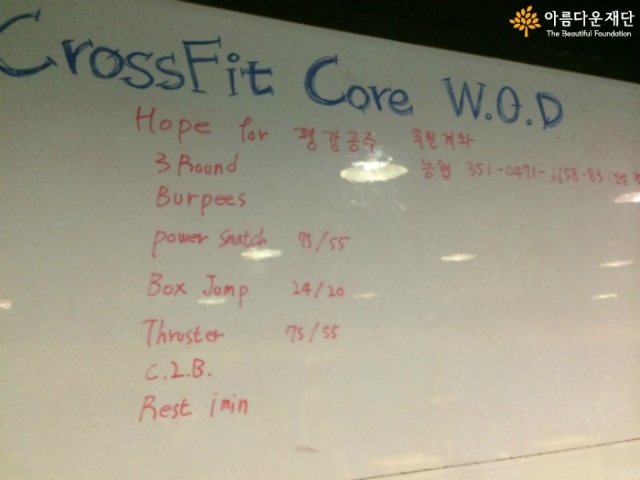 아름다운재단
The Beautiful Foundation
CrossFit Core W.O.D
Hope for 평강공주 후원계좌
3 Round 농협 351-0471-6658-83
Burpees
power snatch 75/55
Box Jump 24/20
Thruster 75/55
C.2.B.
Rest 1min